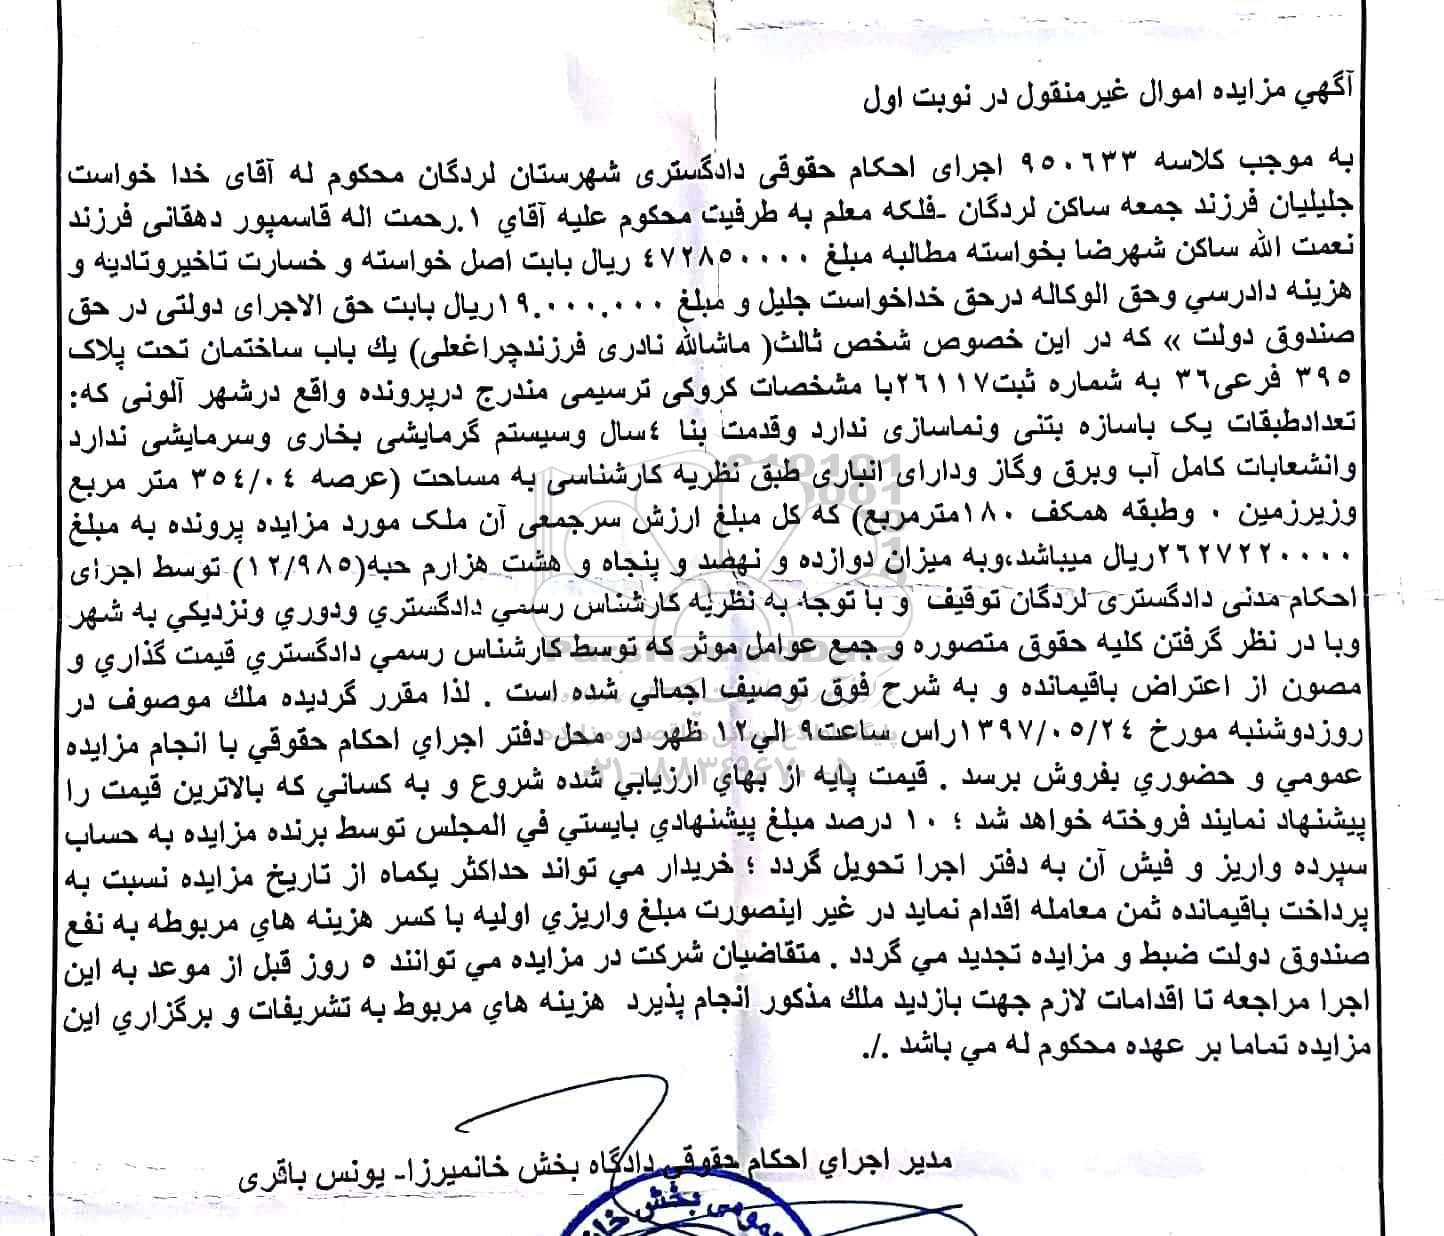 آگهي مزايده اموال غيرمنقول در نوبت اول
به موجب كلاسه ۹۵۰۶۳۳ اجرای احکام حقوقی دادگستری شهرستان لردگان محکوم له آقای خدا خواست
جليليان فرزند جمعه ساکن لردگان -فلکه معلم به طرفيت محكوم عليه آقاي ۱.رحمت اله قاسمپور دهقانی فرزند
نعمت الله ساکن شهرضا بخواسته مطالبه مبلغ ۴۷۲۸۵۰۰۰۰ ریال بابت اصل خواسته و خسارت تاخیروتادیه و
هزینه دادرسي وحق الوکاله درحق خداخواست جلیل و مبلغ ۱۹.۰۰۰.۰۰۰ریال بابت حق الاجرای دولتی در حق
صندوق دولت » که در این خصوص شخص ثالث( ماشالله نادری فرزندچراغعلی) يك باب ساختمان تحت پلاک
۳۹۵ فرعی۳۶ به شماره ثبت۲۶۱۱۷با مشخصات کروکی ترسیمی مندرج درپرونده واقع درشهر آلونی که:
تعدادطبقات یک باسازه بتنی ونماسازی ندارد وقدمت بنا ۴سال وسیستم گرمایشی بخاری وسرمایشی ندارد
وانشعابات کامل آب وبرق وگاز ودارای انباری طبق نظریه کارشناسی به مساحت (عرصه ۳۵۴/۰۴ متر مربع
وزیرزمین ۰ وطبقه همکف ۱۸۰مترمربع) که کل مبلغ ارزش سرجمعی آن ملک مورد مزایده پرونده به مبلغ
۲۶۲۷۲۲۰۰۰۰ریال میباشد،وبه میزان دوازده و نهصد و پنجاه و هشت هزارم حبه(۱۲/۹۸۵) توسط اجرای
احکام مدنی دادگستری لردگان توقیف و با توجه به نظریه کارشناس رسمي دادگستري ودوري ونزديكي به شهر
وبا در نظر گرفتن كليه حقوق متصوره و جمع عوامل موثر كه توسط كارشناس رسمي دادگستري قيمت گذاري و
مصون از اعتراض باقيمانده و به شرح فوق توصيف اجمالي شده است . لذا مقرر گرديده ملك موصوف در
روزدوشنبه مورخ ۱۳۹۷/۰۵/۲۴راس ساعت۹ الي۱۲ ظهر در محل دفتر اجراي احكام حقوقي با انجام مزايده
عمومي و حضوري بفروش برسد . قيمت پايه از بهاي ارزيابي شده شروع و به كساني كه بالاترين قيمت را
پيشنهاد نمايند فروخته خواهد شد ؛ ۱۰ درصد مبلغ پيشنهادي بايستي في المجلس توسط برنده مزايده به حساب
سپرده واريز و فيش آن به دفتر اجرا تحويل گردد ؛ خريدار مي تواند حداكثر يكماه از تاريخ مزايده نسبت به
پرداخت باقيمانده ثمن معامله اقدام نمايد در غير اينصورت مبلغ واريزي اوليه با كسر هزينه هاي مربوطه به نفع
صندوق دولت ضبط و مزايده تجديد مي گردد . متقاضيان شركت در مزايده مي توانند ۵ روز قبل از موعد به اين
اجرا مراجعه تا اقدامات لازم جهت بازديد ملك مذكور انجام پذيرد هزينه هاي مربوط به تشريفات و برگزاري اين
مزايده تماما بر عهده محكوم له مي باشد ./.
مدير اجراي احكام حقوقی دادگاه بخش خانمیرزا- یونس باقری
عمومی بخش